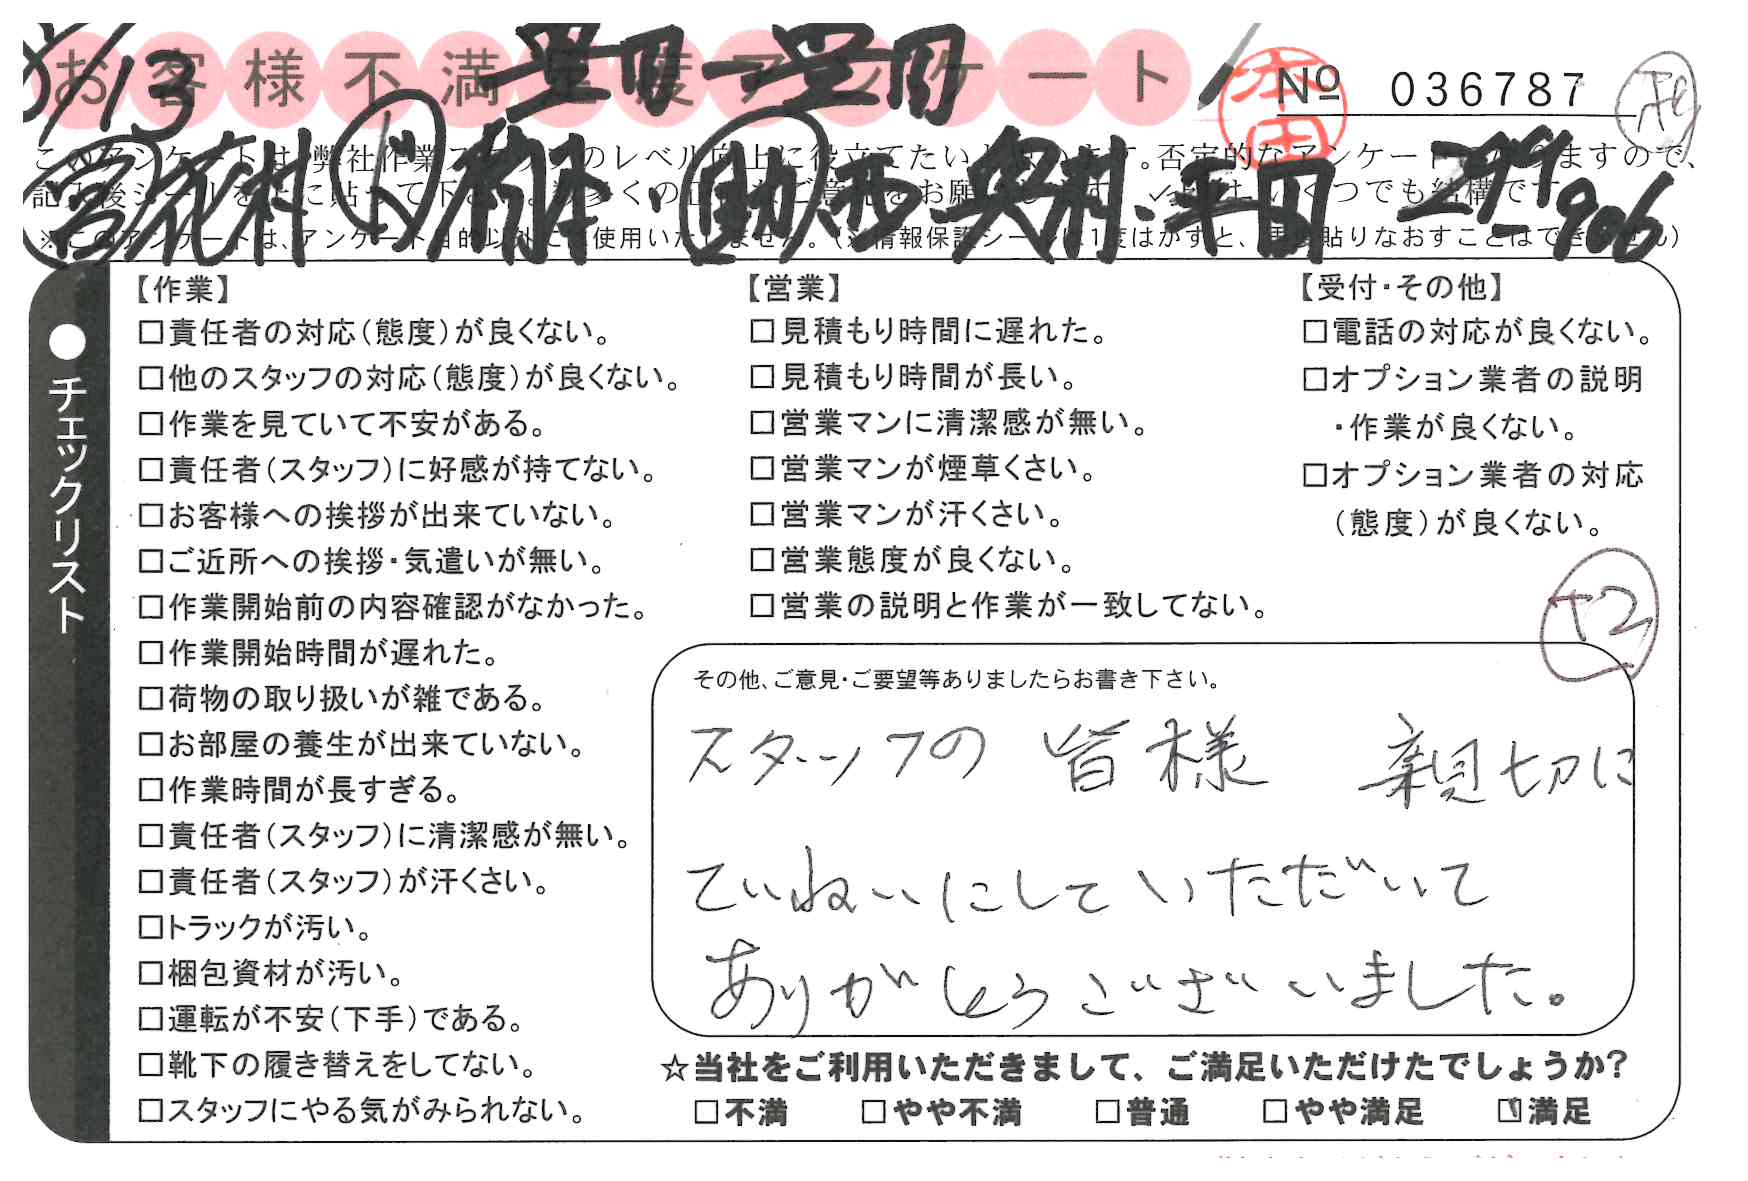 お客様不満足度アンケート
8/13 豊田→豊田
本田
№ 036787
このアンケートは、弊社作業スタッフのレベル向上に役立てたいと思います。否定的なアンケートになりますので、
※このアンケートは、アンケート目的以外には使用いたしません。(※情報保護シールは1度はがすと、再度貼りなおすことはできません)
営 花村 ド 楠本・助 西、央村、平田
-906
●チェックリスト
【作業】
□責任者の対応(態度)が良くない。
□他のスタッフの対応(態度)が良くない。
□作業を見ていて不安がある。
□責任者(スタッフ)に好感が持てない。
□お客様への挨拶が出来ていない。
□ご近所への挨拶・気遣いが無い。
□作業開始前の内容確認がなかった。
□作業開始時間が遅れた。
□荷物の取り扱いが雑である。
□お部屋の養生が出来ていない。
□作業時間が長すぎる。
□責任者(スタッフ)に清潔感が無い。
□責任者(スタッフ)が汗くさい。
□トラックが汚い。
□梱包資材が汚い。
□運転が不安(下手)である。
□靴下の履き替えをしてない。
□スタッフにやる気がみられない。
【営業】
□見積もり時間に遅れた。
□見積もり時間が長い。
□営業マンに清潔感が無い。
□営業マンが煙草くさい。
□営業マンが汗くさい。
□営業態度が良くない。
□営業の説明と作業が一致してない。
【受付・その他】
□電話の対応が良くない。
□オプション業者の説明
・作業が良くない。
□オプション業者の対応
(態度)が良くない。
+2
その他、ご意見・ご要望等ありましたらお書き下さい。
スタッフの 皆様 親切に
ていねいにして いただいて
ありがとうございました。
☆当社をご利用いただきまして、ご満足いただけたでしょうか?
□不満 □やや不満 □普通 □やや満足 ☑満足